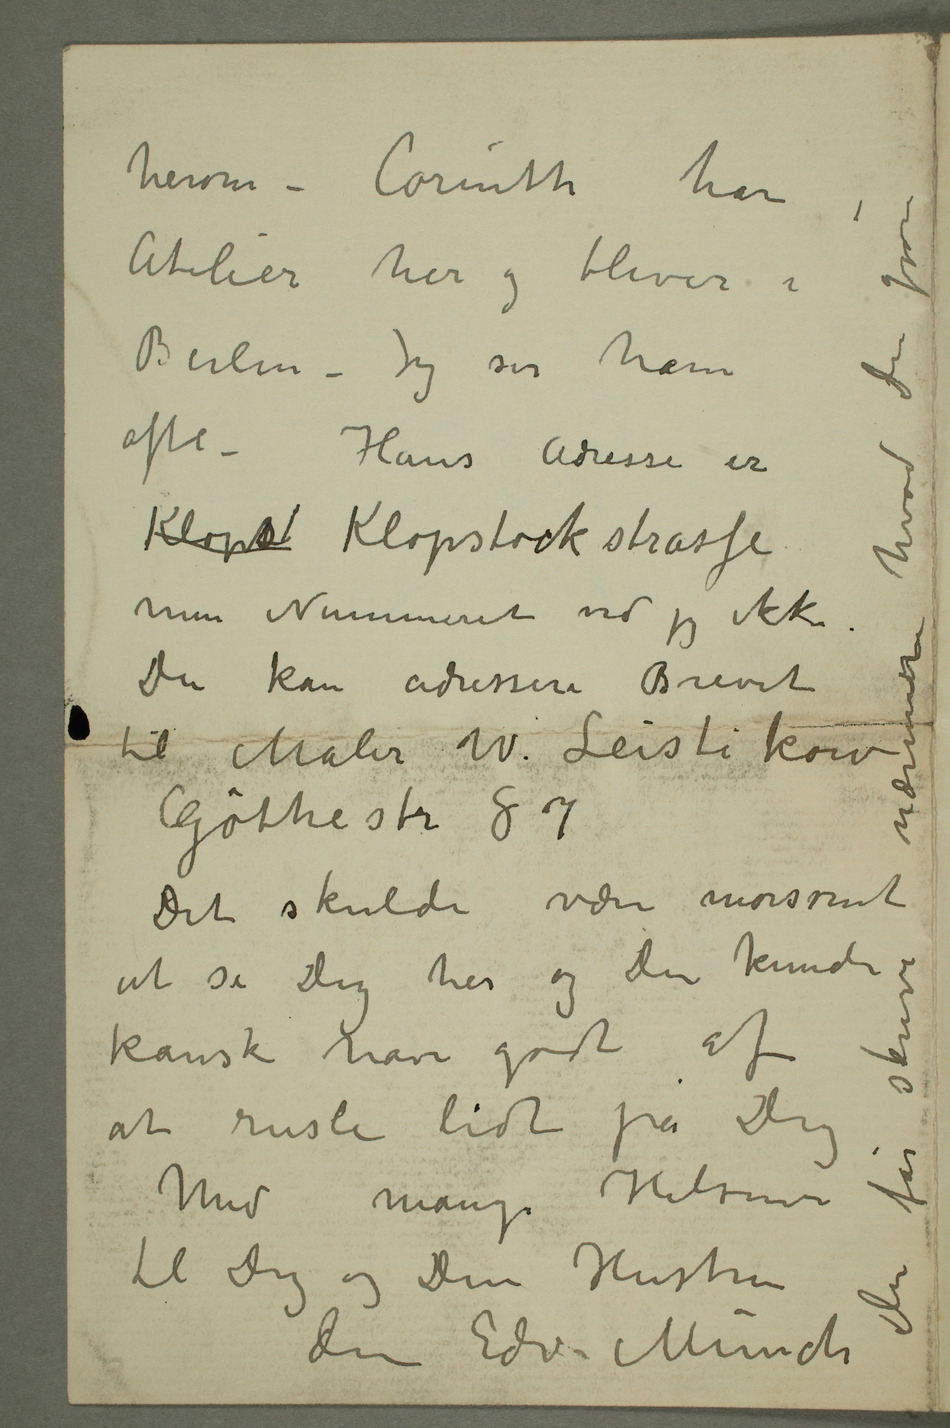 herom – Corinth har
Atelier her og bliver i
Berlin – Jeg ser ham
ofte – Hans Adresse er
Klopst Klopstockstrasse
men Nummeret ved jeg ikke.
Du kan adressere Brevet
til Maler W. Leistikow
Göthestr 87
Det skulde være morsomt
at se Dig her og Du kunde
kanske have godt af
at rusle lidt på Dig
Med mange Hilsener
til Dig og Din Hustru
Din Edv. Munch
Du får skrive nærmere hvad du gjør